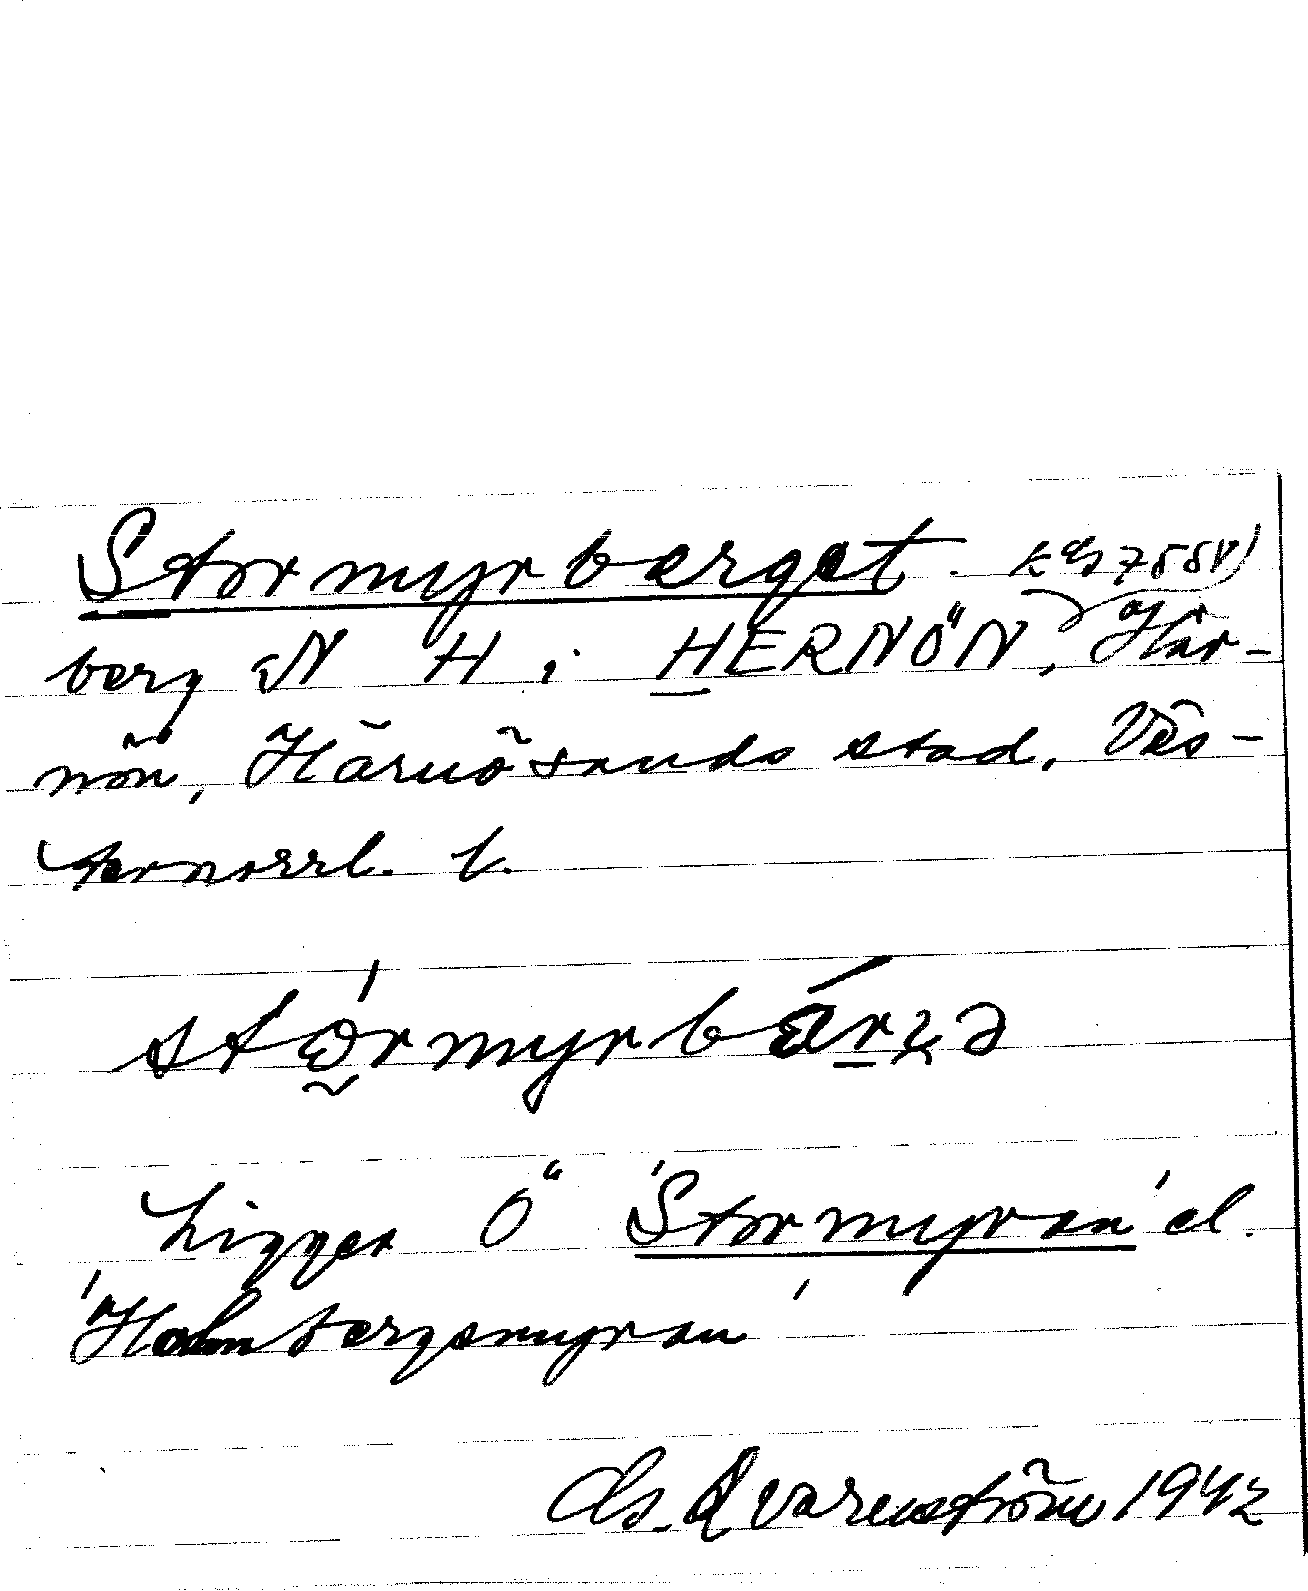 Stormyrberget.
berg N H i HERNÖN, Här-
nön, Härnösands stad, Väs-
ternorrl. l.
Ligger Ö 'Stormyran' el.
'Holmbergsmyran'
Qvarenström 1942